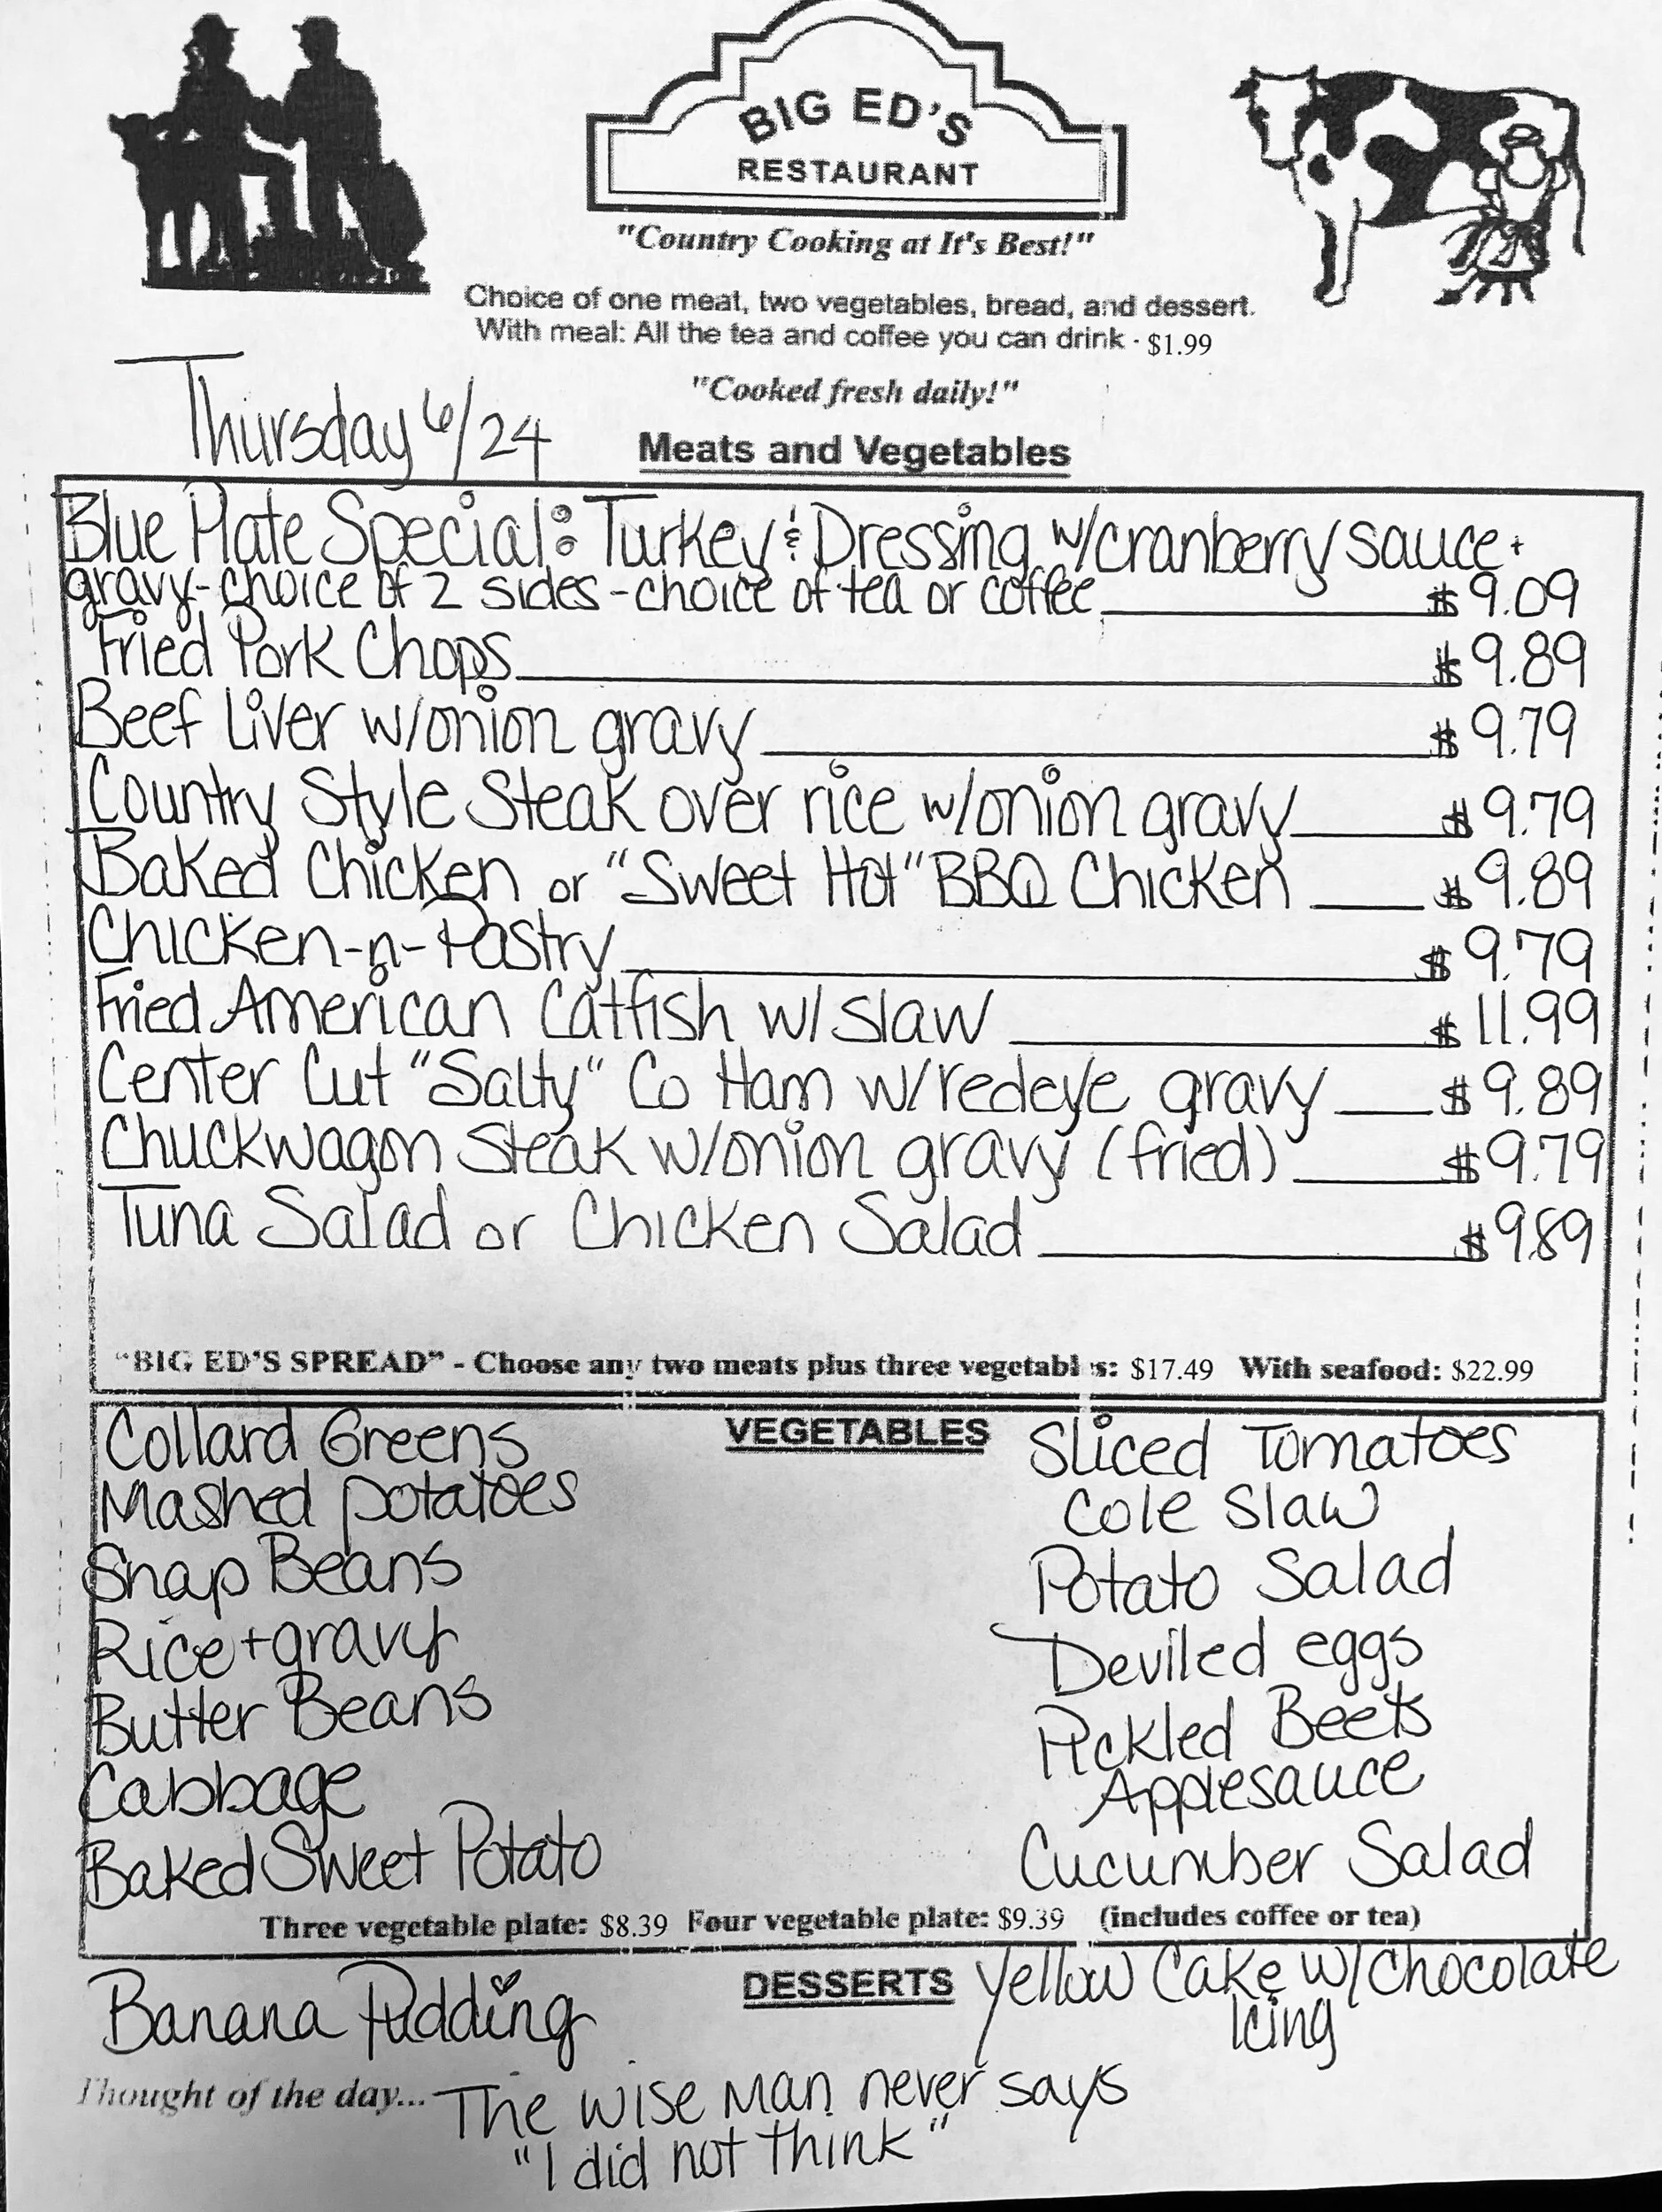 BIG ED'S
RESTAURANT
"Country Cooking at It's Best!"
Choice of one meat, two vegetables, bread, and dessert.
With meal: All the tea and coffee you can drink - $1.99
"Cooked fresh daily!"
Thursday 6/24
Meats and Vegetables
Blue Plate Special: Turkey & Dressing w/cranberry sauce +
gravy-choice of 2 sides-choice of tea or coffee $9.09
Fried Pork Chops $9.89
Beef Liver w/onion gravy $9.79
Country Style Steak over rice w/onion gravy $9.79
Baked Chicken or "Sweet Hot" BBQ Chicken $9.89
Chicken-n-Pastry $9.79
Fried American Catfish w/slaw $11.99
Center Cut "Salty" Co Ham w/redeye gravy $9.89
Chuckwagon Steak w/onion gravy (fried) $9.79
Tuna Salad or Chicken Salad $9.89
"BIG ED'S SPREAD" - Choose any two meats plus three vegetables: $17.49 With seafood: $22.99
VEGETABLES
Collard Greens
Mashed potatoes
Snap Beans
Rice + gravy
Butter Beans
Cabbage
Baked Sweet Potato
Sliced Tomatoes
Cole Slaw
Potato Salad
Deviled eggs
Pickled Beets
Applesauce
Cucumber Salad
Three vegetable plate: $8.39 Four vegetable plate: $9.39 (includes coffee or tea)
DESSERTS
Banana Pudding
Yellow Cake w/Chocolate
Icing
Thought of the day... The wise man never says
"I did not think"